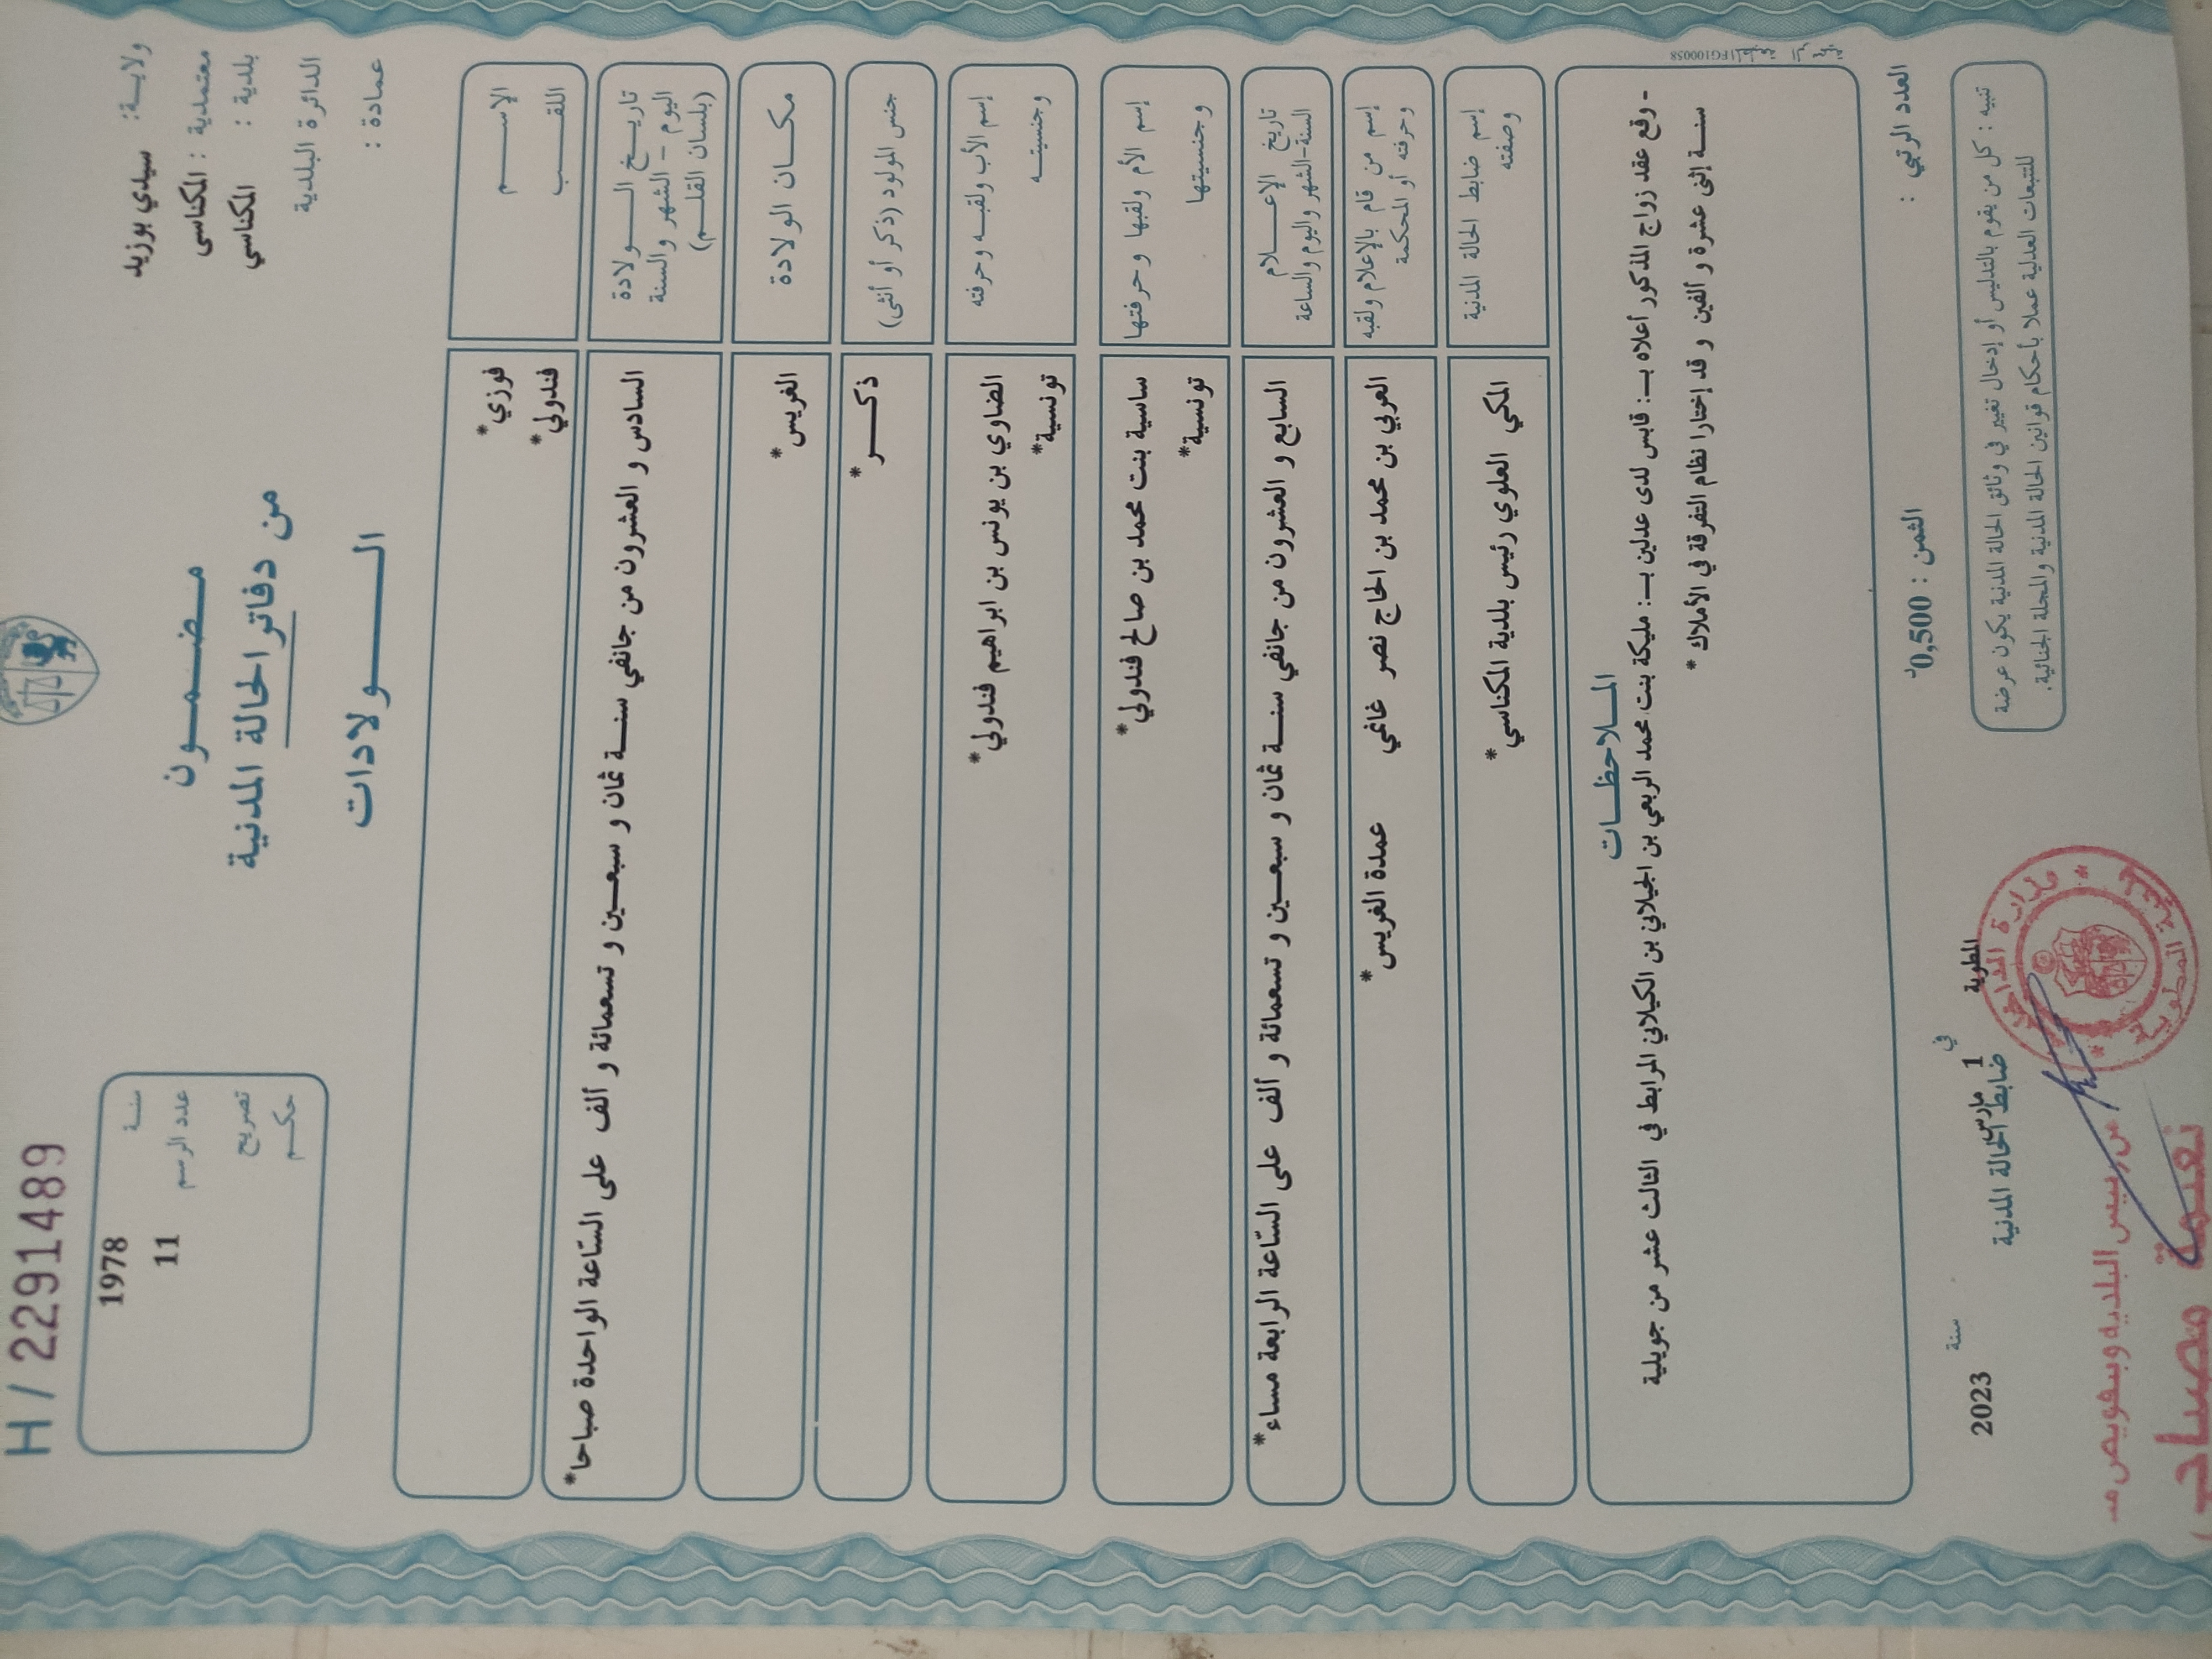 H / 2291489
ولايـــة: سيدي بوزيد
معتمدية : المكناسي
بلدية : المكناسي
الدائرة البلدية
عمادة :
مـضــمــون
من دفاتر الحالة المدنية
الـــولادات
سنـــة 1978
عدد الرسم 11
تصريح
حكـــم
الإســــم فوزي*
اللقـــب فندولي*
تاريـــخ الــــولادة
اليوم - الشهر والسنة
(بلسان القلـــم)
السادس و العشرون من جانفي سنـــة ثمان و سبعـــين و تسعمائة و ألف على السّاعة الواحدة صباحا*
مكـــان الولادة الغريس*
جنس المولود (ذكر أو أنثى) ذكـــر*
إسم الأب ولقبـــه وحرفته الضاوي بن يونس بن ابراهيم فندولي*
وجنسيتـــه تونسية*
إسم الأم ولقبها وحرفتها ساسية بنت محمد بن صالح فندولي*
وجنسيتها تونسية*
تاريخ الإعـــلام
السنة-الشهر واليوم والساعة
السابع و العشرون من جانفي سنـــة ثمان و سبعـــين و تسعمائة و ألف على السّاعة الرابعة مساء*
إسم من قام بالإعلام ولقبه
وحرفته أو المحكمة
العربي بن محمد بن الحاج نصر غانمي عمدة الغريس*
إسم ضابط الحالة المدنية
وصفته
المكي العلوي رئيس بلدية المكناسي*
الملاحظـــات
- وقع عقد زواج المذكور أعلاه بـ: قابس لدى عدلين بـ: مليكة بنت محمد الربعي بن الجيلاني بن الكيلاني المرابط في الثالث عشر من جويلية
سنـــة إثنى عشرة و ألفين و قد إختارا نظام التفرقة في الأملاك *
العدد الرتبي :
الثمن : 0,500د
تنبيه : كل من يقوم بالتدليس أو إدخال تغيير في وثائق الحالة المدنية يكون عرضة
للتتبعات العدلية عملا بأحكام قوانين الحالة المدنية والمجلة الجنائية.
المطوية في 1 مارس سنة 2023
ضابط الحالة المدنية
عن رئيس البلدية وبتفويض منه
نعيمة